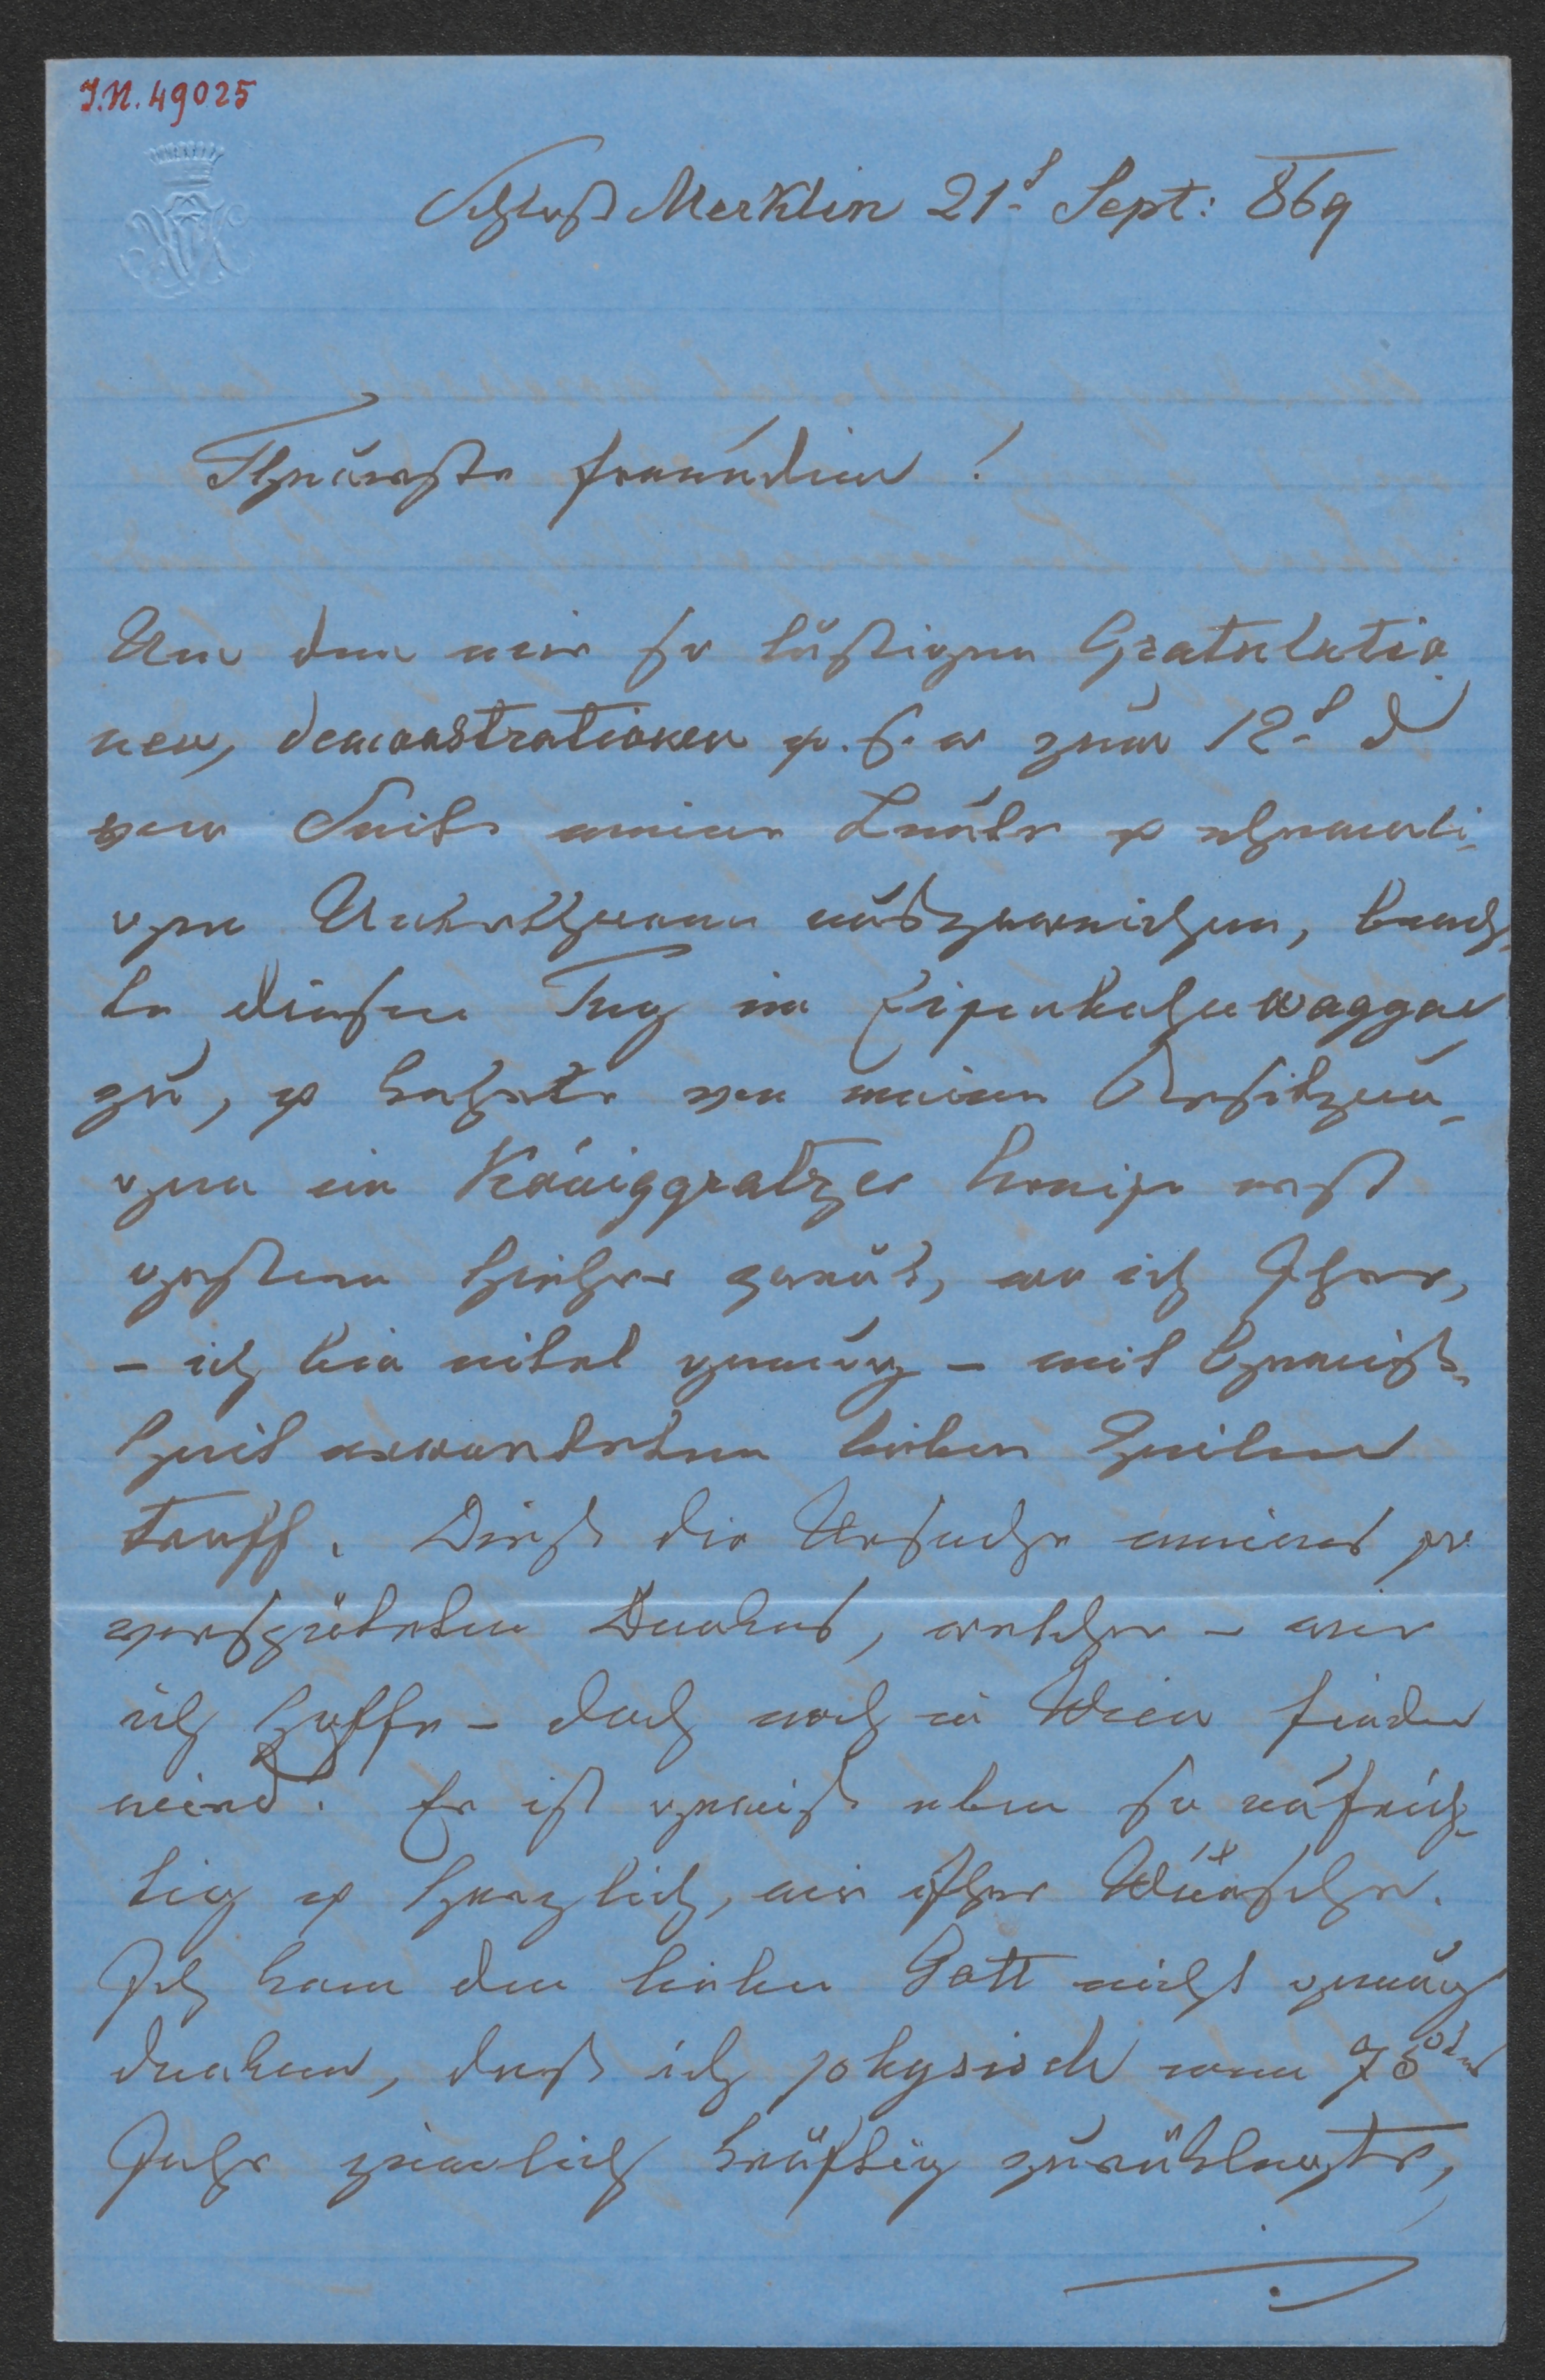 I.N. 49025
Schloß Merklin 21t Sept: 869
Theuerste Freundin!
Um den mir so lästigen Gratulatio-
nen, demonstrationen u. s. w zum 12t d
von Seite meiner Leute u ehemali-
gen Unterthanen auszuweichen, brach-
te diesen Tag im Eisenbahnwaggon
zu, u kehrte von meinen Besitzun-
gen im Königgratzer Kreise erst
gestern hieher zurük, wo ich Ihre,
– ich bin eitel genug – mit Gewiß-
heit erwarteten lieben Zeilen
traff. Dieß die Ursache meines so
verspäteten Dankes, welcher – wie
ich hoffe – Sie noch in Wien finden
wird. Er ist gewiß eben so aufrich-
tig u herzlich, wie Ihre Wünsche.
Ich kann dem lieben Gott nicht genug
danken, daß ich physisch mein 75stes
Jahr ziemlich kräftig zurüklegte,